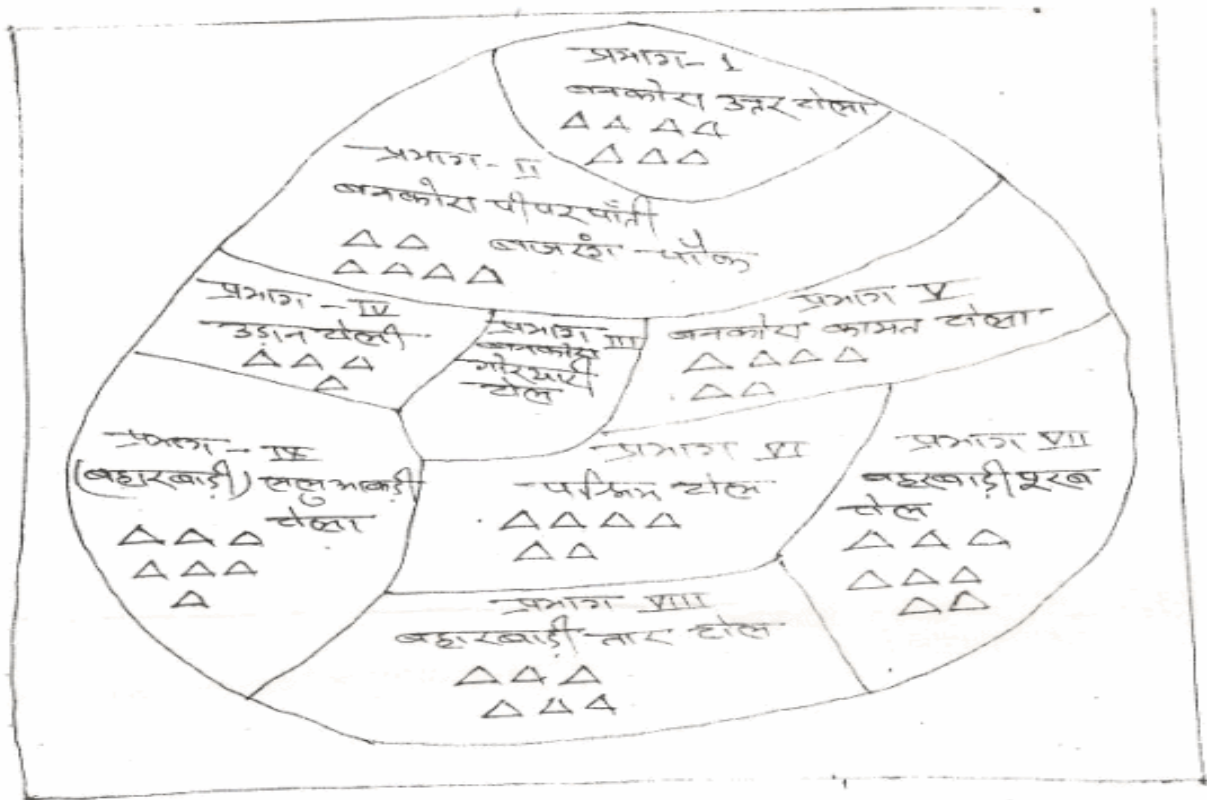 प्रभाग - 1
बनकोरा उत्तर टोला
प्रभाग - II
बनकोरा पीपरपाँती
बजरंग चौक
प्रभाग - IV
उड़ान टोली
प्रभाग III
बनकोरा
टोल
प्रभाग V
बनकोरा कामत टोला
प्रभाग - IX
(बहारबाड़ी)
टोला
प्रभाग VI
पश्चिम टोल
प्रभाग VII
बहरबाड़ी पूरब
टोल
प्रभाग VIII
बहारबाड़ी तार टोल